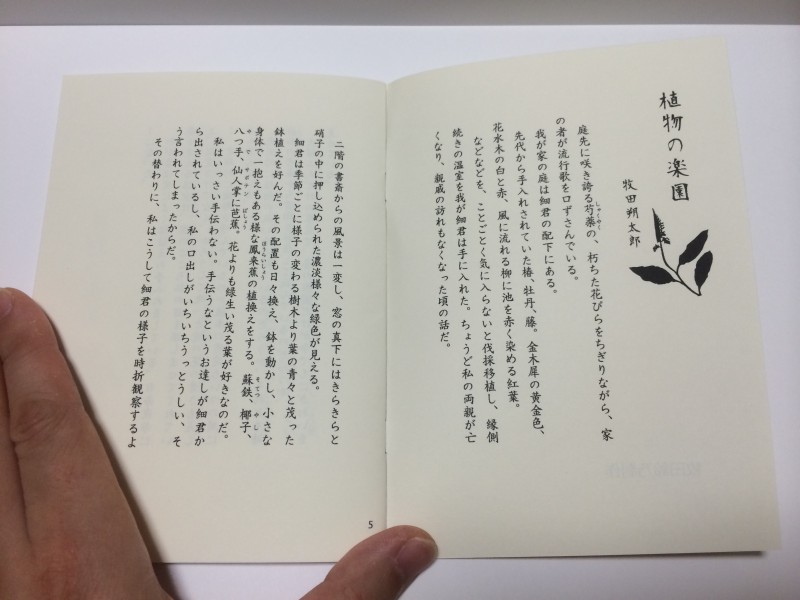 植物の楽園
牧田朔太郎
庭先に咲き誇る芍薬の、朽ちた花びらをちぎりながら、家
の者が流行歌を口ずさんでいる。
我が家の庭は細君の配下にある。
先代から手入れされていた椿、牡丹、藤。金木犀の黄金色、
花水木の白と赤、風に流れる柳に池を赤く染める紅葉。
などなどを、ことごとく気に入らないと伐採移植し、縁側
続きの温室を我が細君は手に入れた。ちょうど私の両親が亡
くなり、親戚の訪れもなくなった頃の話だ。
二階の書斎からの風景は一変し、窓の真下にはきらきらと
硝子の中に押し込められた濃淡様々な緑色が見える。
細君は季節ごとに様子の変わる樹木より葉の青々と茂った
鉢植えを好んだ。その配置も日々換え、鉢を動かし、小さな
身体で一抱えもある様な鳳来蕉の植換えをする。蘇鉄、椰子、
八つ手、仙人掌に芭蕉。花よりも緑生い茂る葉が好きなのだ。
私はいっさい手伝わない。手伝うなというお達しが細君か
ら出されているし、私の口出しがいちいちうっとうしい、そ
う言われてしまったからだ。
その替わりに、私はこうして細君の様子を時折観察するよ
5